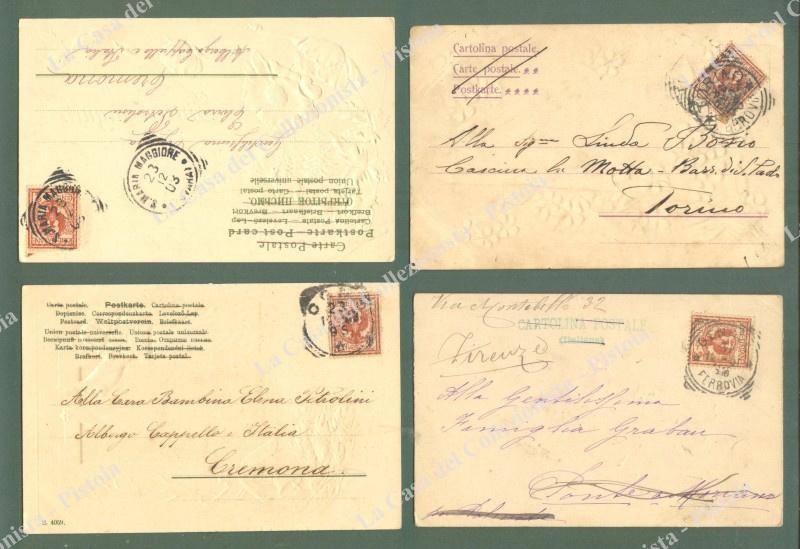 Albergo Cappello e Italia
Cremona
Clara Petrolini
Gentilissima
S. MARIA MAGGIORE
23
12
03
Union postale universelle
Tarjeta postal - Carte postal
ОТКРЫТОЕ ПИСЬМО.
Brefkort - Briefkaart - Brevkort
Cartolina postale - Levelező-Lap
Postkarte - Post card
Carte Postale
Cartolina postale.
Carte postale.
Postkarte.
FERROVIA
Alla Sga Linda Bosio
Cascina la Motta - Barr. di S. Paolo
Torino
Carte postale. Postkarte. Cartolina postale.
Dopisnice. Correspondenzkarte. Levelező-Lap.
Postcard. Weltpostverein. Briefkaart.
Union postale universelle. Unione postale universale.
Karta korespondencyjna. Korespondenční lístek.
Brefkort. Brevkort. Tarjeta postal.
Alla Cara Bambina Elena Petrolini
Albergo Cappello e Italia
Cremona
S. 4059.
Via Montebello 32
CARTOLINA POSTALE
(Italiana)
Firenze
FERROVIA
Alla Gentilissima
Famiglia Grabau
Ponte a Moriano
La Casa del Collezionista - Pistoia